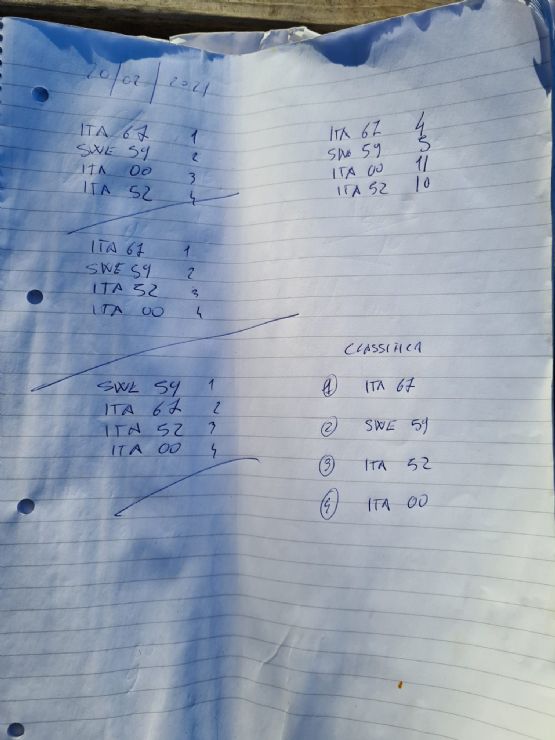 20/02/2021
ITA 67 1
SWE 59 2
ITA 00 3
ITA 52 4
ITA 67 1
SWE 59 2
ITA 52 3
ITA 00 4
SWE 59 1
ITA 67 2
ITA 52 3
ITA 00 4
ITA 67 4
SWE 59 5
ITA 00 11
ITA 52 10
CLASSIFICA
1 ITA 67
2 SWE 59
3 ITA 52
4 ITA 00